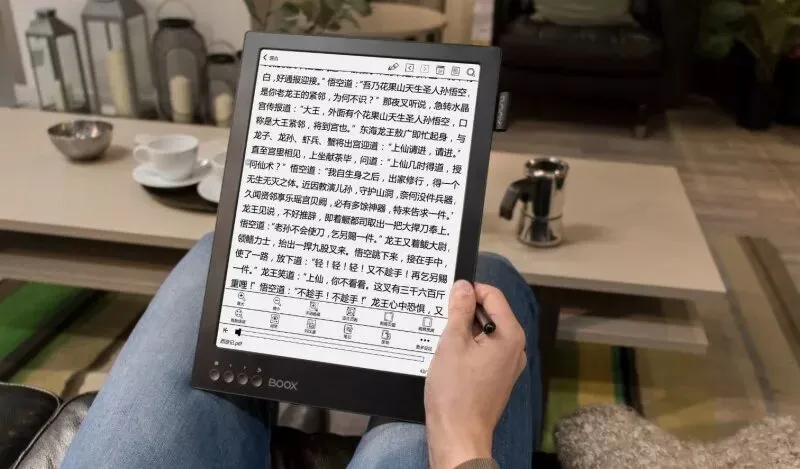 白，好通报迎接。”悟空道：“吾乃花果山天生圣人孙悟空，
是你老龙王的紧邻，为何不识？”那夜叉听说，急转水晶
宫传报道：“大王，外面有个花果山天生圣人孙悟空，口
称是大王紧邻，将到宫也。”东海龙王敖广即忙起身，与
龙子、龙孙、虾兵、蟹将出宫迎道：“上仙请进，请进。”
直至宫里相见，上坐献茶毕，问道：“上仙几时得道，授
何仙术？”悟空道：“我自生身之后，出家修行，得一个
无生无灭之体。近因教演儿孙，守护山洞，奈何没件兵器，
久闻贤邻享乐瑶宫贝阙，必有多馀神器，特来告求一件。”
龙王见说，不好推辞，即着鳜都司取出一把大捍刀奉上。
悟空道：“老孙不会使刀，乞另赐一件。”龙王又着鲌大尉，
领鳝力士，抬出一捍九股叉来。悟空跳下来，接在手中，
使了一路，放下道：“轻！轻！轻！又不趁手！再乞另赐
一件。”龙王笑道：“上仙，你不看看。这叉有三千六百斤
重哩！”悟空道：“不趁手！不趁手！”龙王心中恐惧，又
西游记.pdf
BOOX